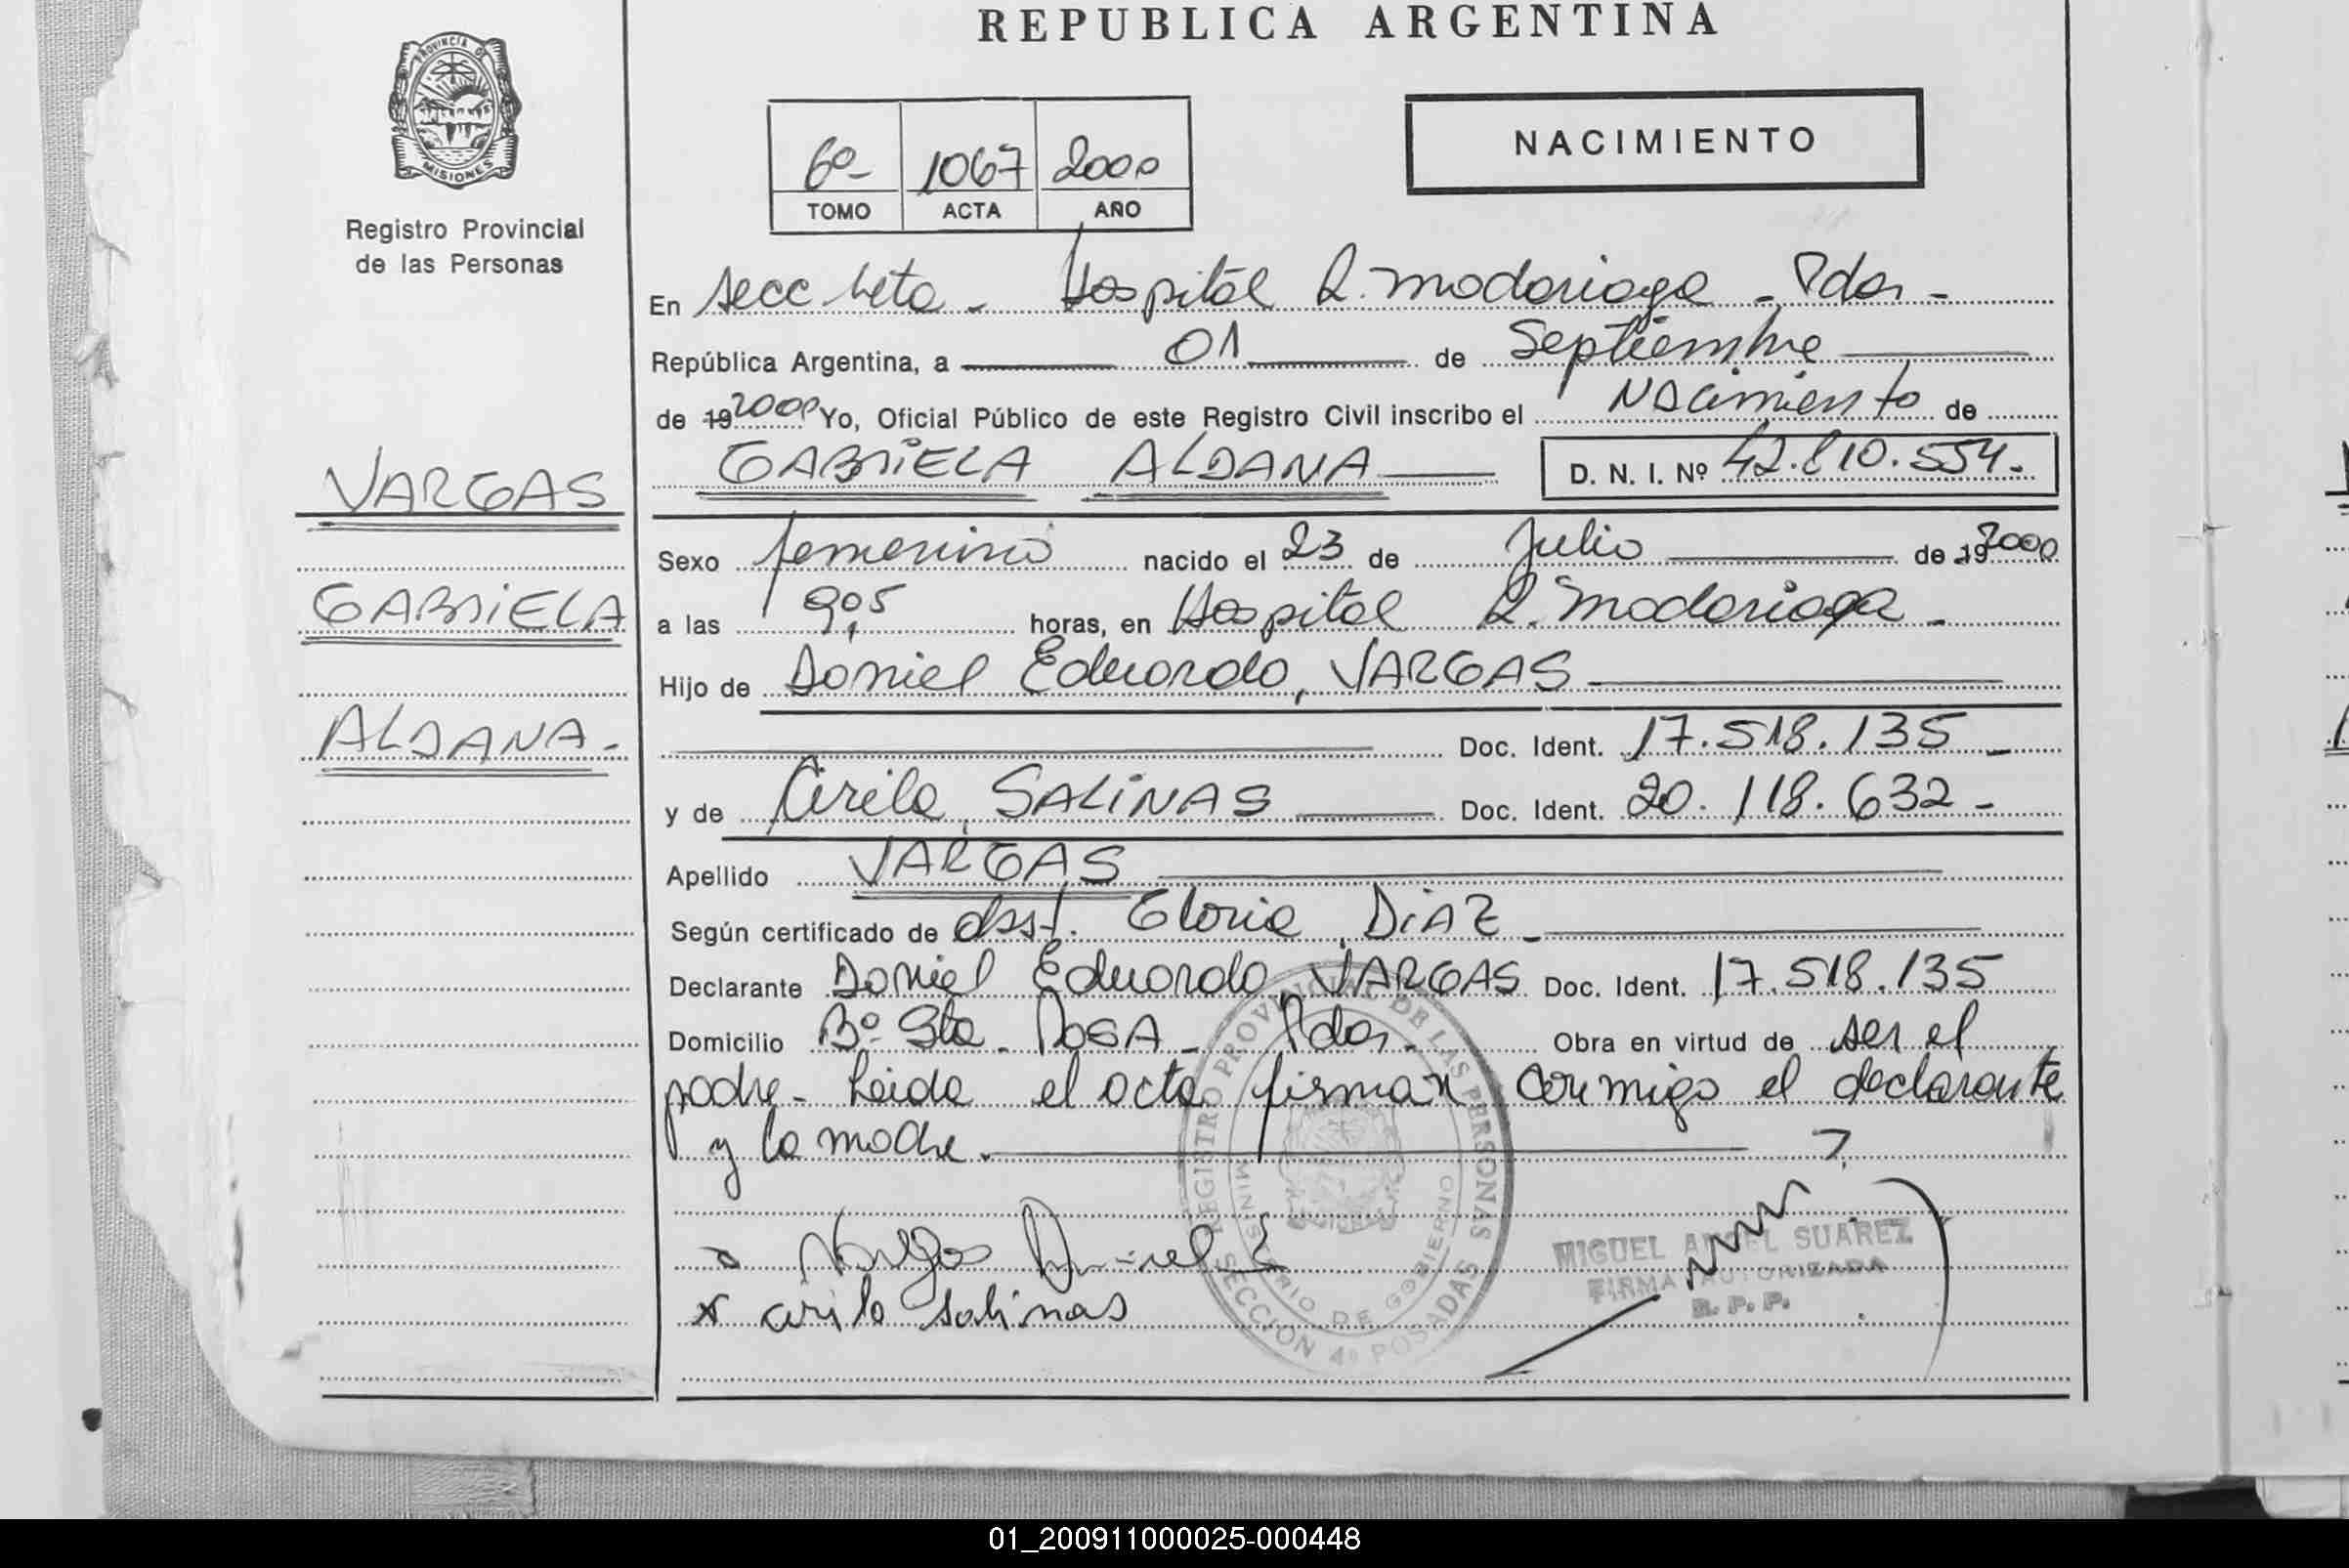 REPUBLICA ARGENTINA
PROVINCIA DE
MISIONES
Registro Provincial
de las Personas
6º- 1067 2000
TOMO ACTA AÑO
NACIMIENTO
En secc 4eta - Hospital R. Madariaga - Pdas -
República Argentina, a 01 de Septiembre
de 19 2000 Yo, Oficial Público de este Registro Civil inscribo el Nacimiento de
GABRIELA ALDANA D. N. I. Nº 42.810.554.-
VARGAS
GABRIELA
ALDANA.-
Sexo femenino nacido el 23 de Julio de 19 2000
a las 9,05 horas, en Hospital R. Madariaga -
Hijo de Daniel Eduardo, VARGAS
Doc. Ident. 17.518.135 -
y de Cirila, SALINAS Doc. Ident. 20.118.632 -
Apellido VARGAS
Según certificado de obst. Gloria, DIAZ -
Declarante Daniel Eduardo, VARGAS Doc. Ident. 17.518.135
Domicilio Bº Sta. ROSA - Pdas. Obra en virtud de ser el
padre - Leida el acta firman conmigo el declarante
y la madre.
Vargas Daniel E
x cirila salinas
REGISTRO PROVINCIAL DE LAS PERSONAS
MINISTERIO DE GOBIERNO
SECCION 4ª POSADAS
MIGUEL ANGEL SUAREZ
FIRMA AUTORIZADA
R. P. P.
01_200911000025-000448